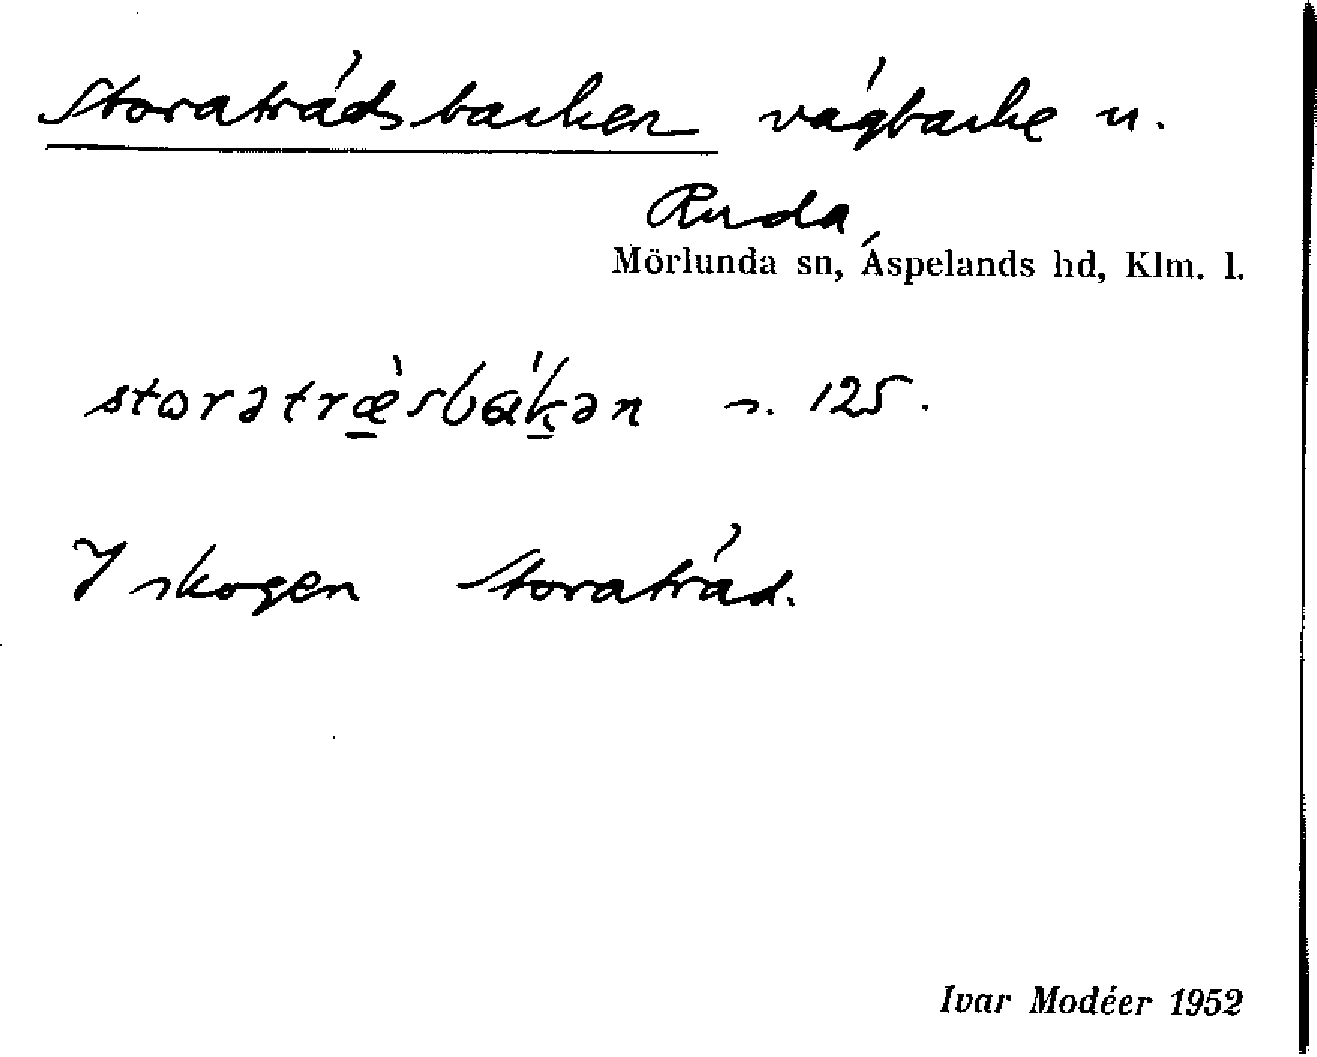 Storaträdsbacken vägbacke u.
Ruda,
Mörlunda sn, Aspelands hd, Klm. l.
storətræ̀sbákən s. 125.
I skogen Storaträd.
Ivar Modéer 1952